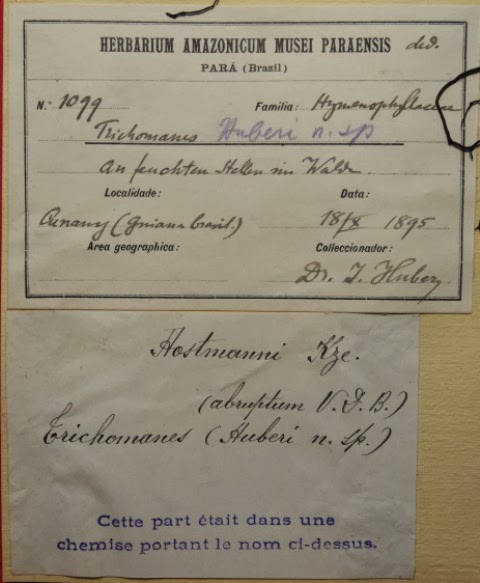 HERBARIUM AMAZONICUM MUSEI PARAENSIS ded.
PARÁ (Brazil)
N.º 1099 Familia: Hymenophyllaceae
Trichomanes Huberi n. sp
An feuchten Stellen im Walde.
Localidade: Data:
(Guiana brasil.) 18/8 1895
Area geographica: Colleccionador:
Dr. J. Huber
Hostmanni Kze.
(abruptum V.D.B.)
Trichomanes (Huberi n. sp.)
Cette part était dans une
chemise portant le nom ci-dessus.